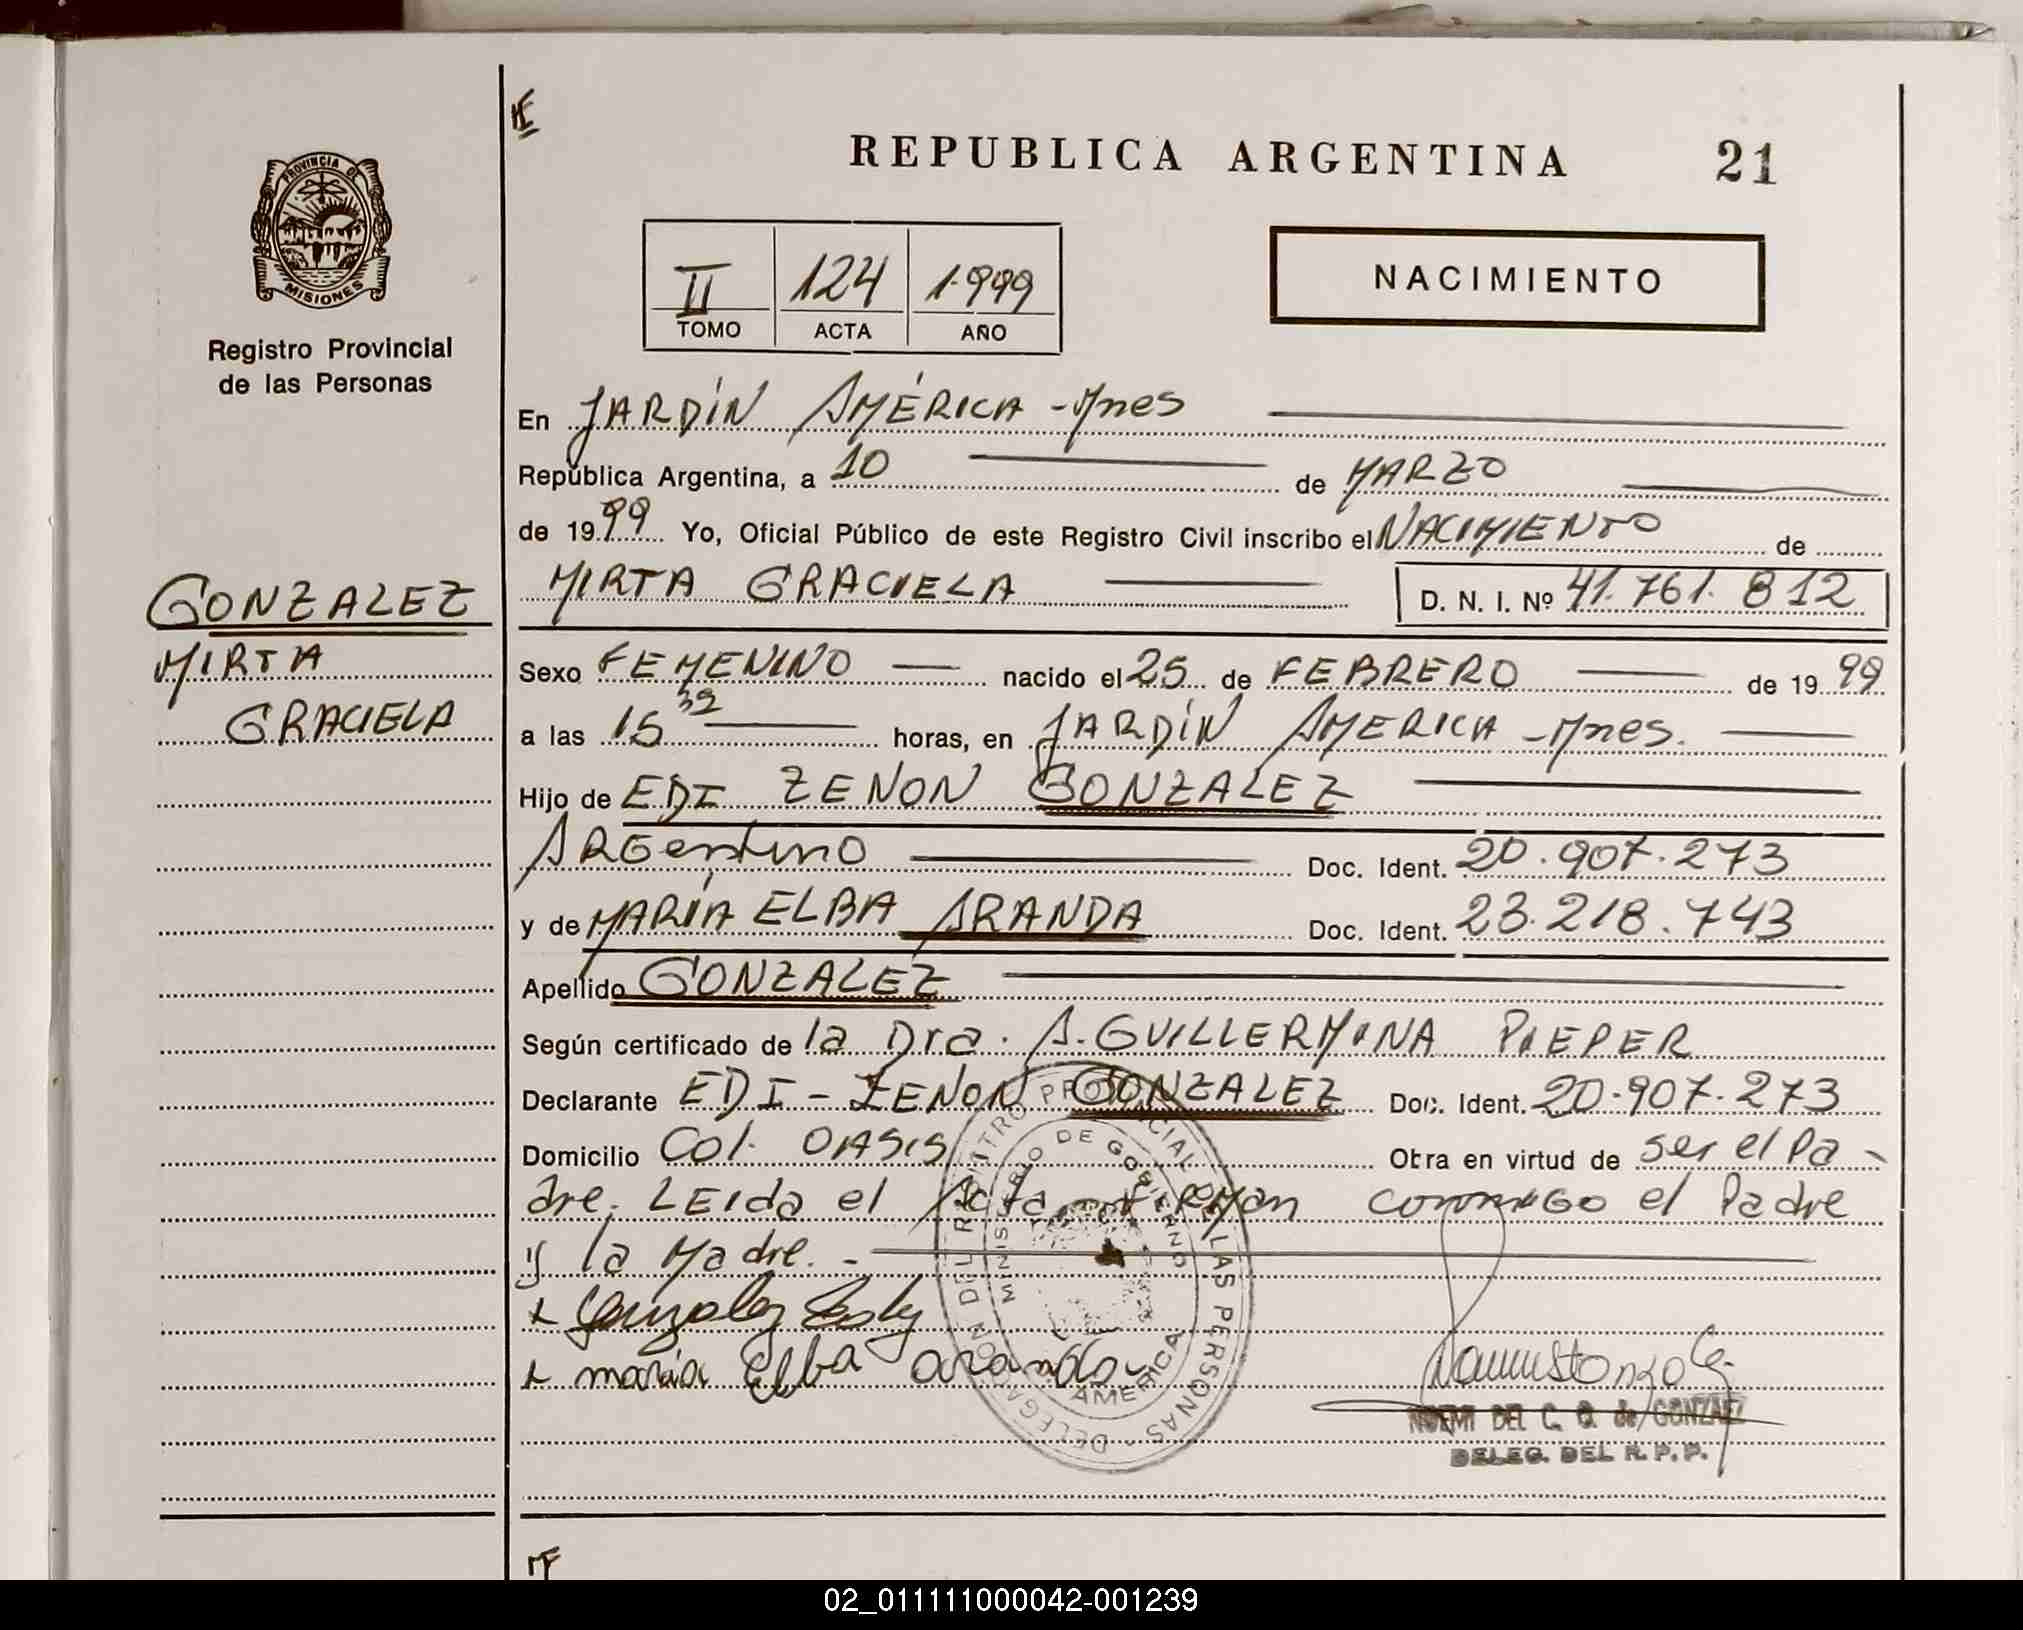 PROVINCIA DE
MISIONES
Registro Provincial
de las Personas
GONZALEZ
MIRTA
GRACIELA
REPUBLICA ARGENTINA 21
II 124 1.999
TOMO ACTA AÑO
NACIMIENTO
En JARDÍN AMÉRICA - Mnes
República Argentina, a 10 de MARZO
de 1999 Yo, Oficial Público de este Registro Civil inscribo el NACIMIENTO de
MIRTA GRACIELA D. N. I. Nº 41.761.812
Sexo FEMENINO nacido el 25 de FEBRERO de 1999
a las 15 horas, en JARDÍN AMERICA - Mnes.
Hijo de EDI ZENON GONZALEZ
ARGentino Doc. Ident. 20.907.273
y de MARÍA ELBA ARANDA Doc. Ident. 23.218.743
Apellido GONZALEZ
Según certificado de la Dra. A. GUILLERMINA PIEPER
Declarante EDI - ZENON GONZALEZ Doc. Ident. 20.907.273
Domicilio Col. OASIS Obra en virtud de ser el Pa-
dre. LEIda el Acta FIRMAn conmiGo el Padre
y la Madre. -
Gonzalez
maria Elba aranda
DELEGACION DEL REGISTRO PROVINCIAL DE LAS PERSONAS
MINISTERIO DE GOBIERNO
AMERICA
NOEMI DEL C. Q. de GONZALEZ
DELEG. DEL R. P. P.
02_011111000042-001239